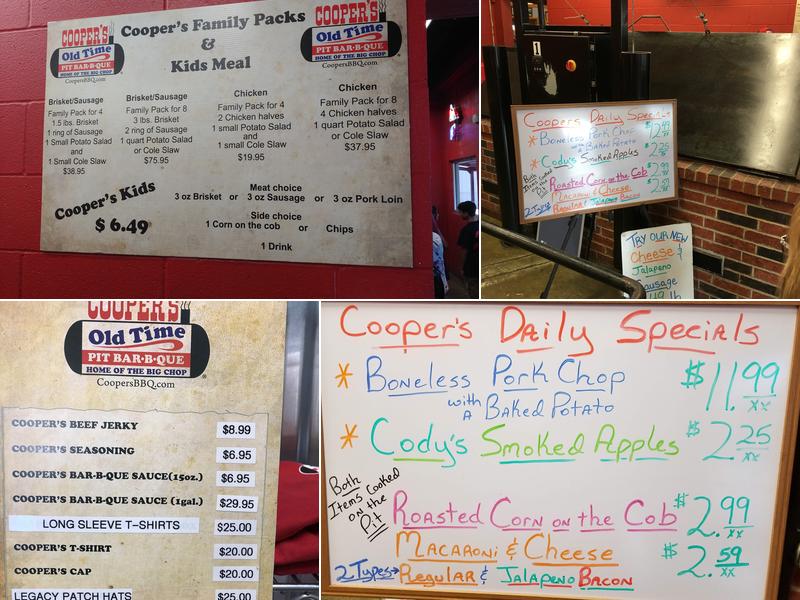 Cooper's Family Packs
&
Kids Meal
COOPER'S
Old Time
PIT BAR-B-QUE
HOME OF THE BIG CHOP
CoopersBBQ.com
COOPER'S
Old Time
PIT BAR-B-QUE
HOME OF THE BIG CHOP
CoopersBBQ.com
Brisket/Sausage
Family Pack for 4
1.5 lbs. Brisket
1 ring of Sausage
1 Small Potato Salad
and
1 Small Cole Slaw
$38.95
Brisket/Sausage
Family Pack for 8
3 lbs. Brisket
2 ring of Sausage
1 quart Potato Salad
or Cole Slaw
$75.95
Chicken
Family Pack for 4
2 Chicken halves
1 small Potato Salad
and
1 small Cole Slaw
$19.95
Chicken
Family Pack for 8
4 Chicken halves
1 quart Potato Salad
or Cole Slaw
$37.95
Cooper's Kids
$ 6.49
Meat choice
3 oz Brisket or 3 oz Sausage or 3 oz Pork Loin
Side choice
1 Corn on the cob or Chips
1 Drink
Coopers Daily Specials
* Boneless Pork Chop
with a Baked Potato
* Cody's Smoked Apples
$2.25
Both Items Cooked on the Pit
Roasted Corn on the Cob
$2.99
Macaroni & Cheese
$2.59
2 Types Regular & Jalapeno Bacon
Try our New
Cheese &
Jalapeno
Sausage
COOPER'S
Old Time
PIT BAR-B-QUE
HOME OF THE BIG CHOP
CoopersBBQ.com
COOPER'S BEEF JERKY $8.99
COOPER'S SEASONING $6.95
COOPER'S BAR-B-QUE SAUCE(15oz.) $6.95
COOPER'S BAR-B-QUE SAUCE (1gal.) $29.95
LONG SLEEVE T-SHIRTS $25.00
COOPER'S T-SHIRT $20.00
COOPER'S CAP $20.00
LEGACY PATCH HATS $25.00
Cooper's Daily Specials
* Boneless Pork Chop $11.99
with a Baked Potato xx
* Cody's Smoked Apples $2.25
xx
Both
Items Cooked
on the
Pit
Roasted Corn on the Cob $2.99
xx
Macaroni & Cheese $2.59
xx
2 Types→ Regular & Jalapeno Bacon